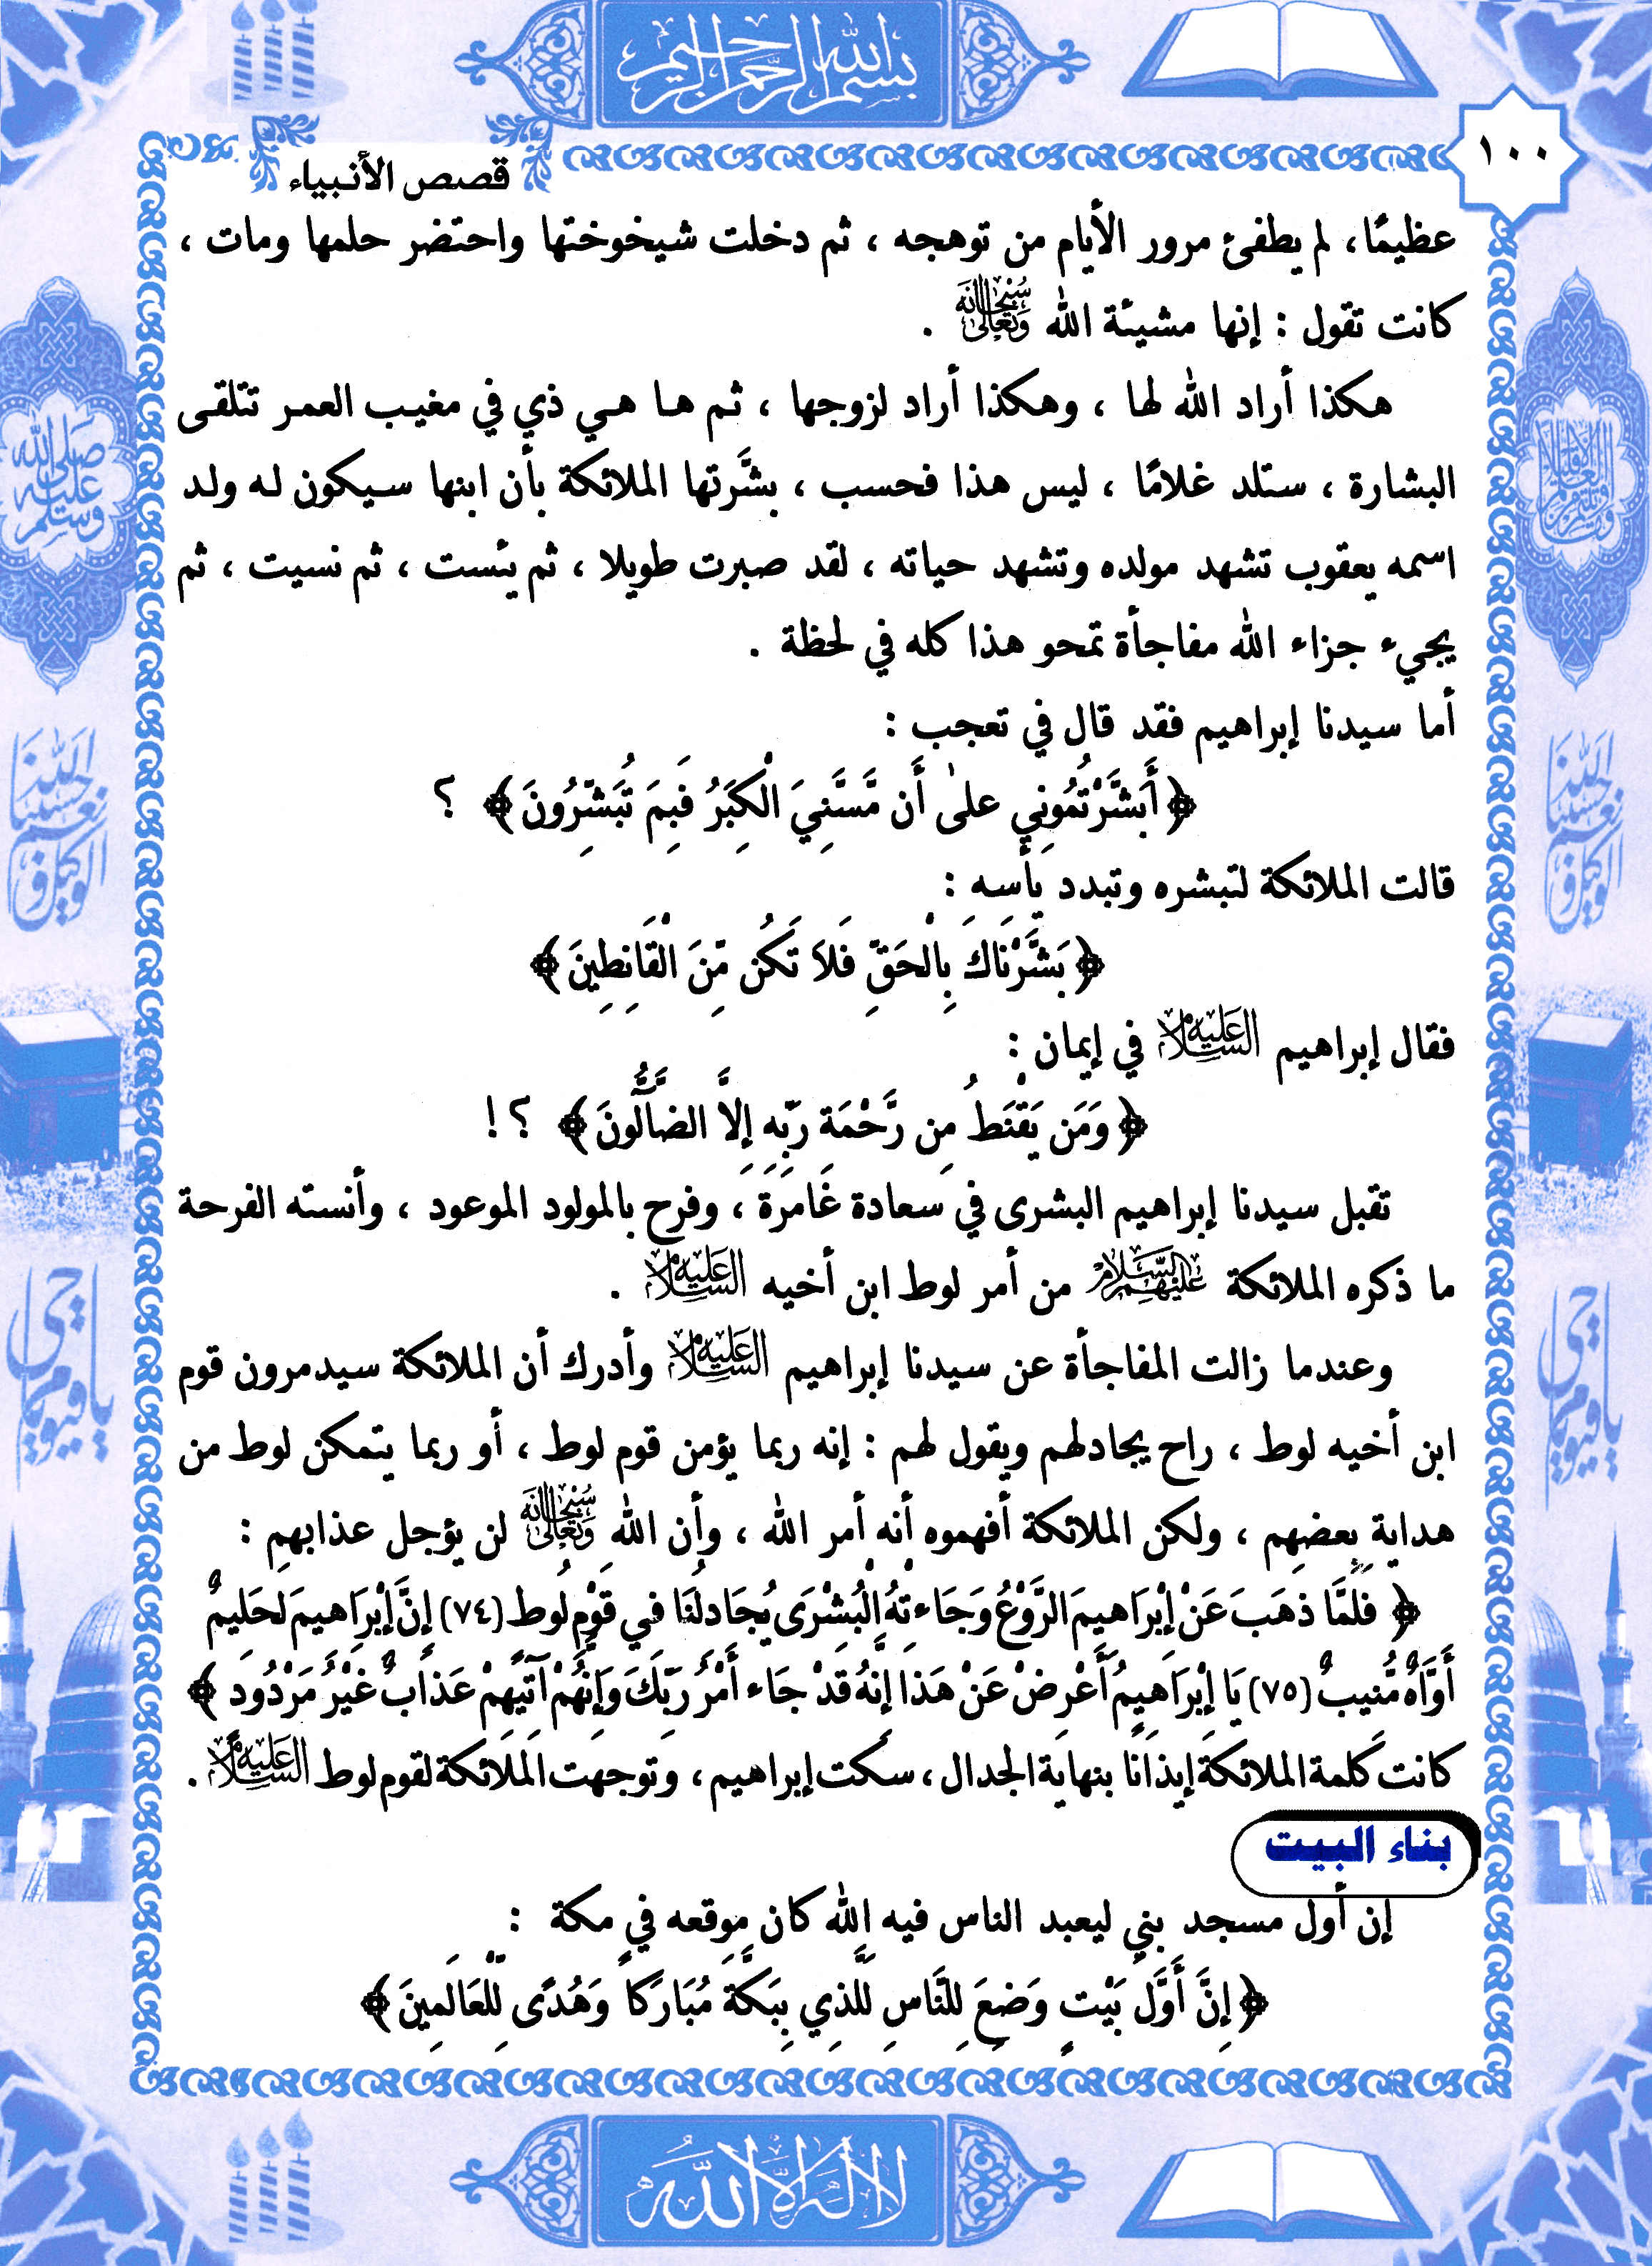 بسم الله الرحمن الرحيم
١٠٠
قصص الأنبياء
عظيمًا، لم يطفئ مرور الأيام من توهجه ، ثم دخلت شيخوختها واحتضر حلمها ومات ،
كانت تقول : إنها مشيئة الله سُبْحَانَهُ وَتَعَالَى .
هكذا أراد الله لها ، وهكذا أراد لزوجها ، ثم ها هي ذي في مغيب العمر تتلقى
البشارة ، ستلد غلامًا ، ليس هذا فحسب ، بشَّرتها الملائكة بأن ابنها سيكون له ولد
اسمه يعقوب تشهد مولده وتشهد حياته ، لقد صبرت طويلا ، ثم يئست ، ثم نسيت ، ثم
يجيء جزاء الله مفاجأة تمحو هذا كله في لحظة .
أما سيدنا إبراهيم فقد قال في تعجب :
﴿ أَبَشَّرْتُمُونِي علىٰ أَن مَّسَّنِيَ الْكِبَرُ فَبِمَ تُبَشِّرُونَ ﴾ ؟
قالت الملائكة لتبشره وتبدد يأسه :
﴿ بَشَّرْنَاكَ بِالْحَقِّ فَلاَ تَكُن مِّنَ الْقَانِطِينَ ﴾
فقال إبراهيم عَلَيْهِ السَّلَام في إيمان :
﴿ وَمَن يَقْنَطُ مِن رَّحْمَةِ رَبِّهِ إِلاَّ الضَّآلُّونَ ﴾ ؟ !
تقبل سيدنا إبراهيم البشرى في سعادة غَامرة ، وفرح بالمولود الموعود ، وأنسته الفرحة
ما ذكره الملائكة عَلَيْهِمُ السَّلَام من أمر لوط ابن أخيه عَلَيْهِ السَّلَام .
وعندما زالت المفاجأة عن سيدنا إبراهيم عَلَيْهِ السَّلَام وأدرك أن الملائكة سيدمرون قوم
ابن أخيه لوط ، راح يجادلهم ويقول لهم : إنه ربما يؤمن قوم لوط ، أو ربما يتمكن لوط من
هداية بعضهم ، ولكن الملائكة أفهموه أنه أمر الله ، وأن الله سُبْحَانَهُ وَتَعَالَى لن يؤجل عذابهم :
﴿ فَلَمَّا ذَهَبَ عَنْ إِبْرَاهِيمَ الرَّوْعُ وَجَاءتْهُ الْبُشْرَى يُجَادِلُنَا فِي قَوْمِ لُوطٍ (٧٤) إِنَّ إِبْرَاهِيمَ لَحَلِيمٌ
أَوَّاهٌ مُّنِيبٌ (٧٥) يَا إِبْرَاهِيمُ أَعْرِضْ عَنْ هَذَا إِنَّهُ قَدْ جَاء أَمْرُ رَبِّكَ وَإِنَّهُمْ آتِيهِمْ عَذَابٌ غَيْرُ مَرْدُودٍ ﴾
كانت كلمة الملائكة إيذانًا بنهاية الجدال ، سكت إبراهيم ، وتوجهت الملائكة لقوم لوط عَلَيْهِ السَّلَام .
بناء البيت
إن أول مسجد بني ليعبد الناس فيه الله كان موقعه في مكة :
﴿ إِنَّ أَوَّلَ بَيْتٍ وُضِعَ لِلنَّاسِ لَلَّذِي بِبَكَّةَ مُبَارَكاً وَهُدًى لِّلْعَالَمِينَ ﴾
لا إله إلا الله
صلى الله عليه وسلم
حسبنا الله ونعم الوكيل
حسبنا الله ونعم الوكيل
يا حي يا قيوم
يا حي يا قيوم